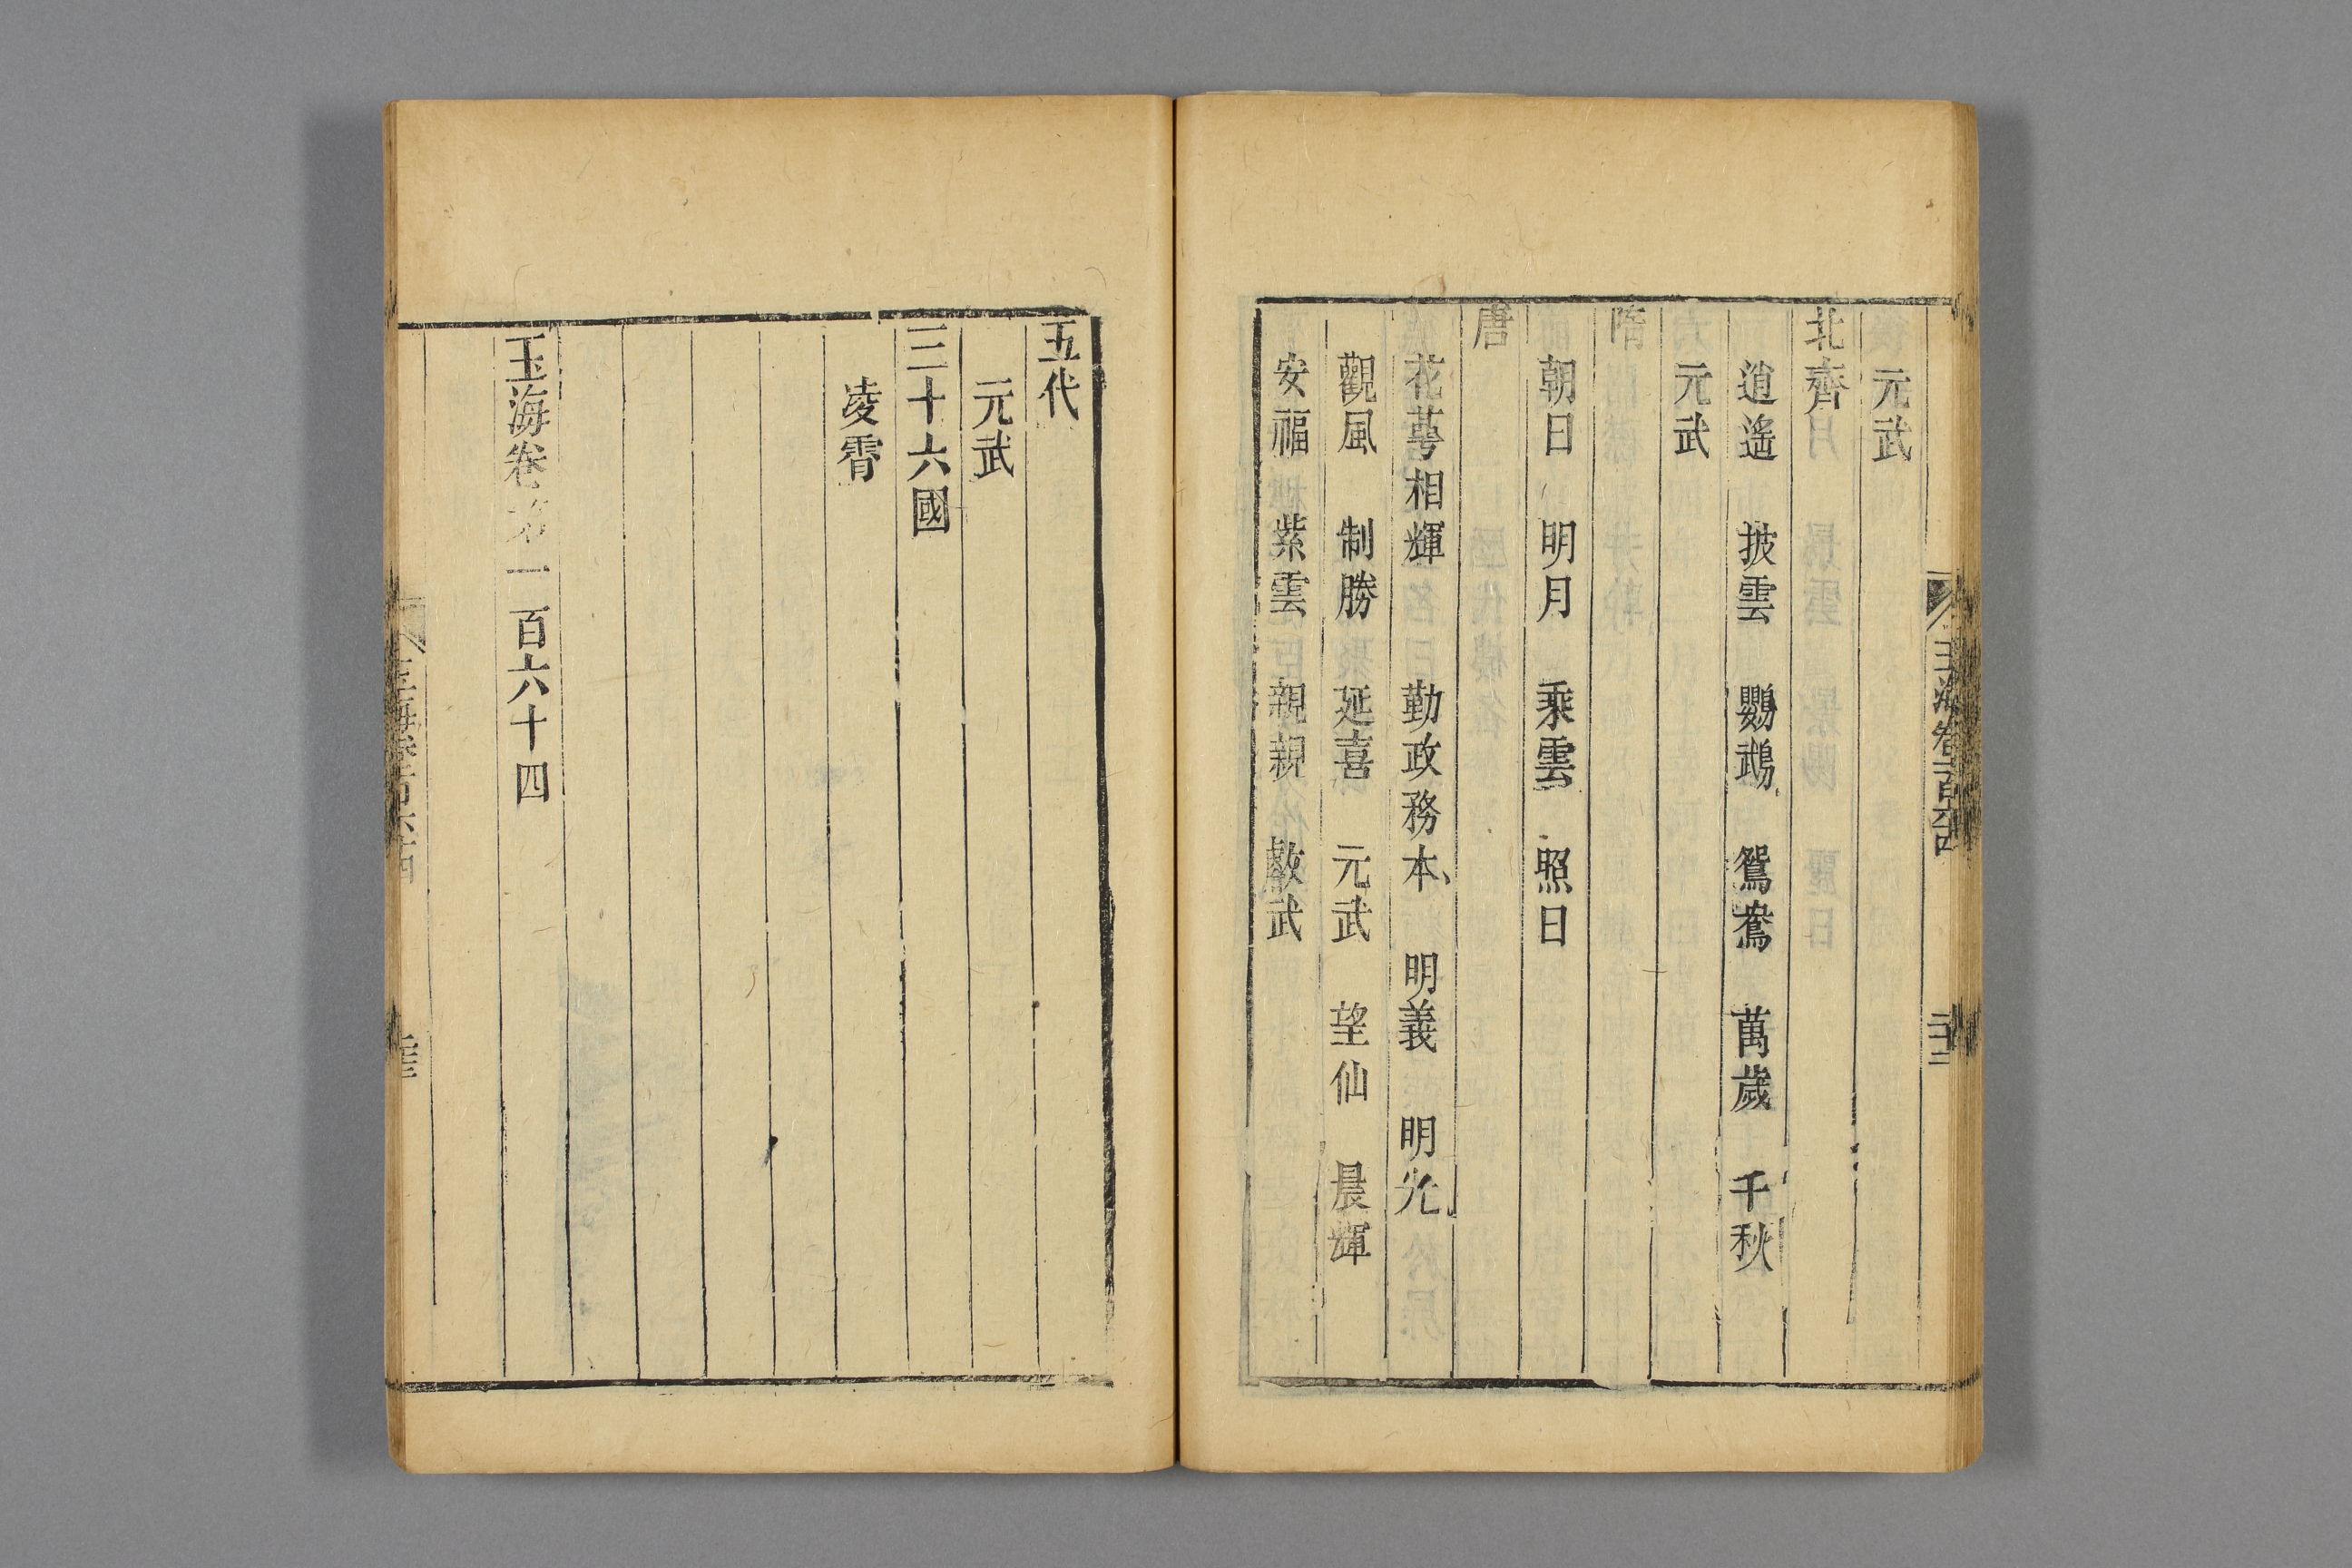 元武
北齊
逍遙 披雲 鸚鵡 鴛鴦 萬歲 千秋
元武
隋
朝日 明月 乘雲 照日
唐
花萼相輝 勤政務本 明義 明光
觀風 制勝 延喜 元武 望仙 晨輝
安福 紫雲 親親 敭武
玉海卷一百六十四
五代
元武
三十六國
凌霄
玉海卷第一百六十四